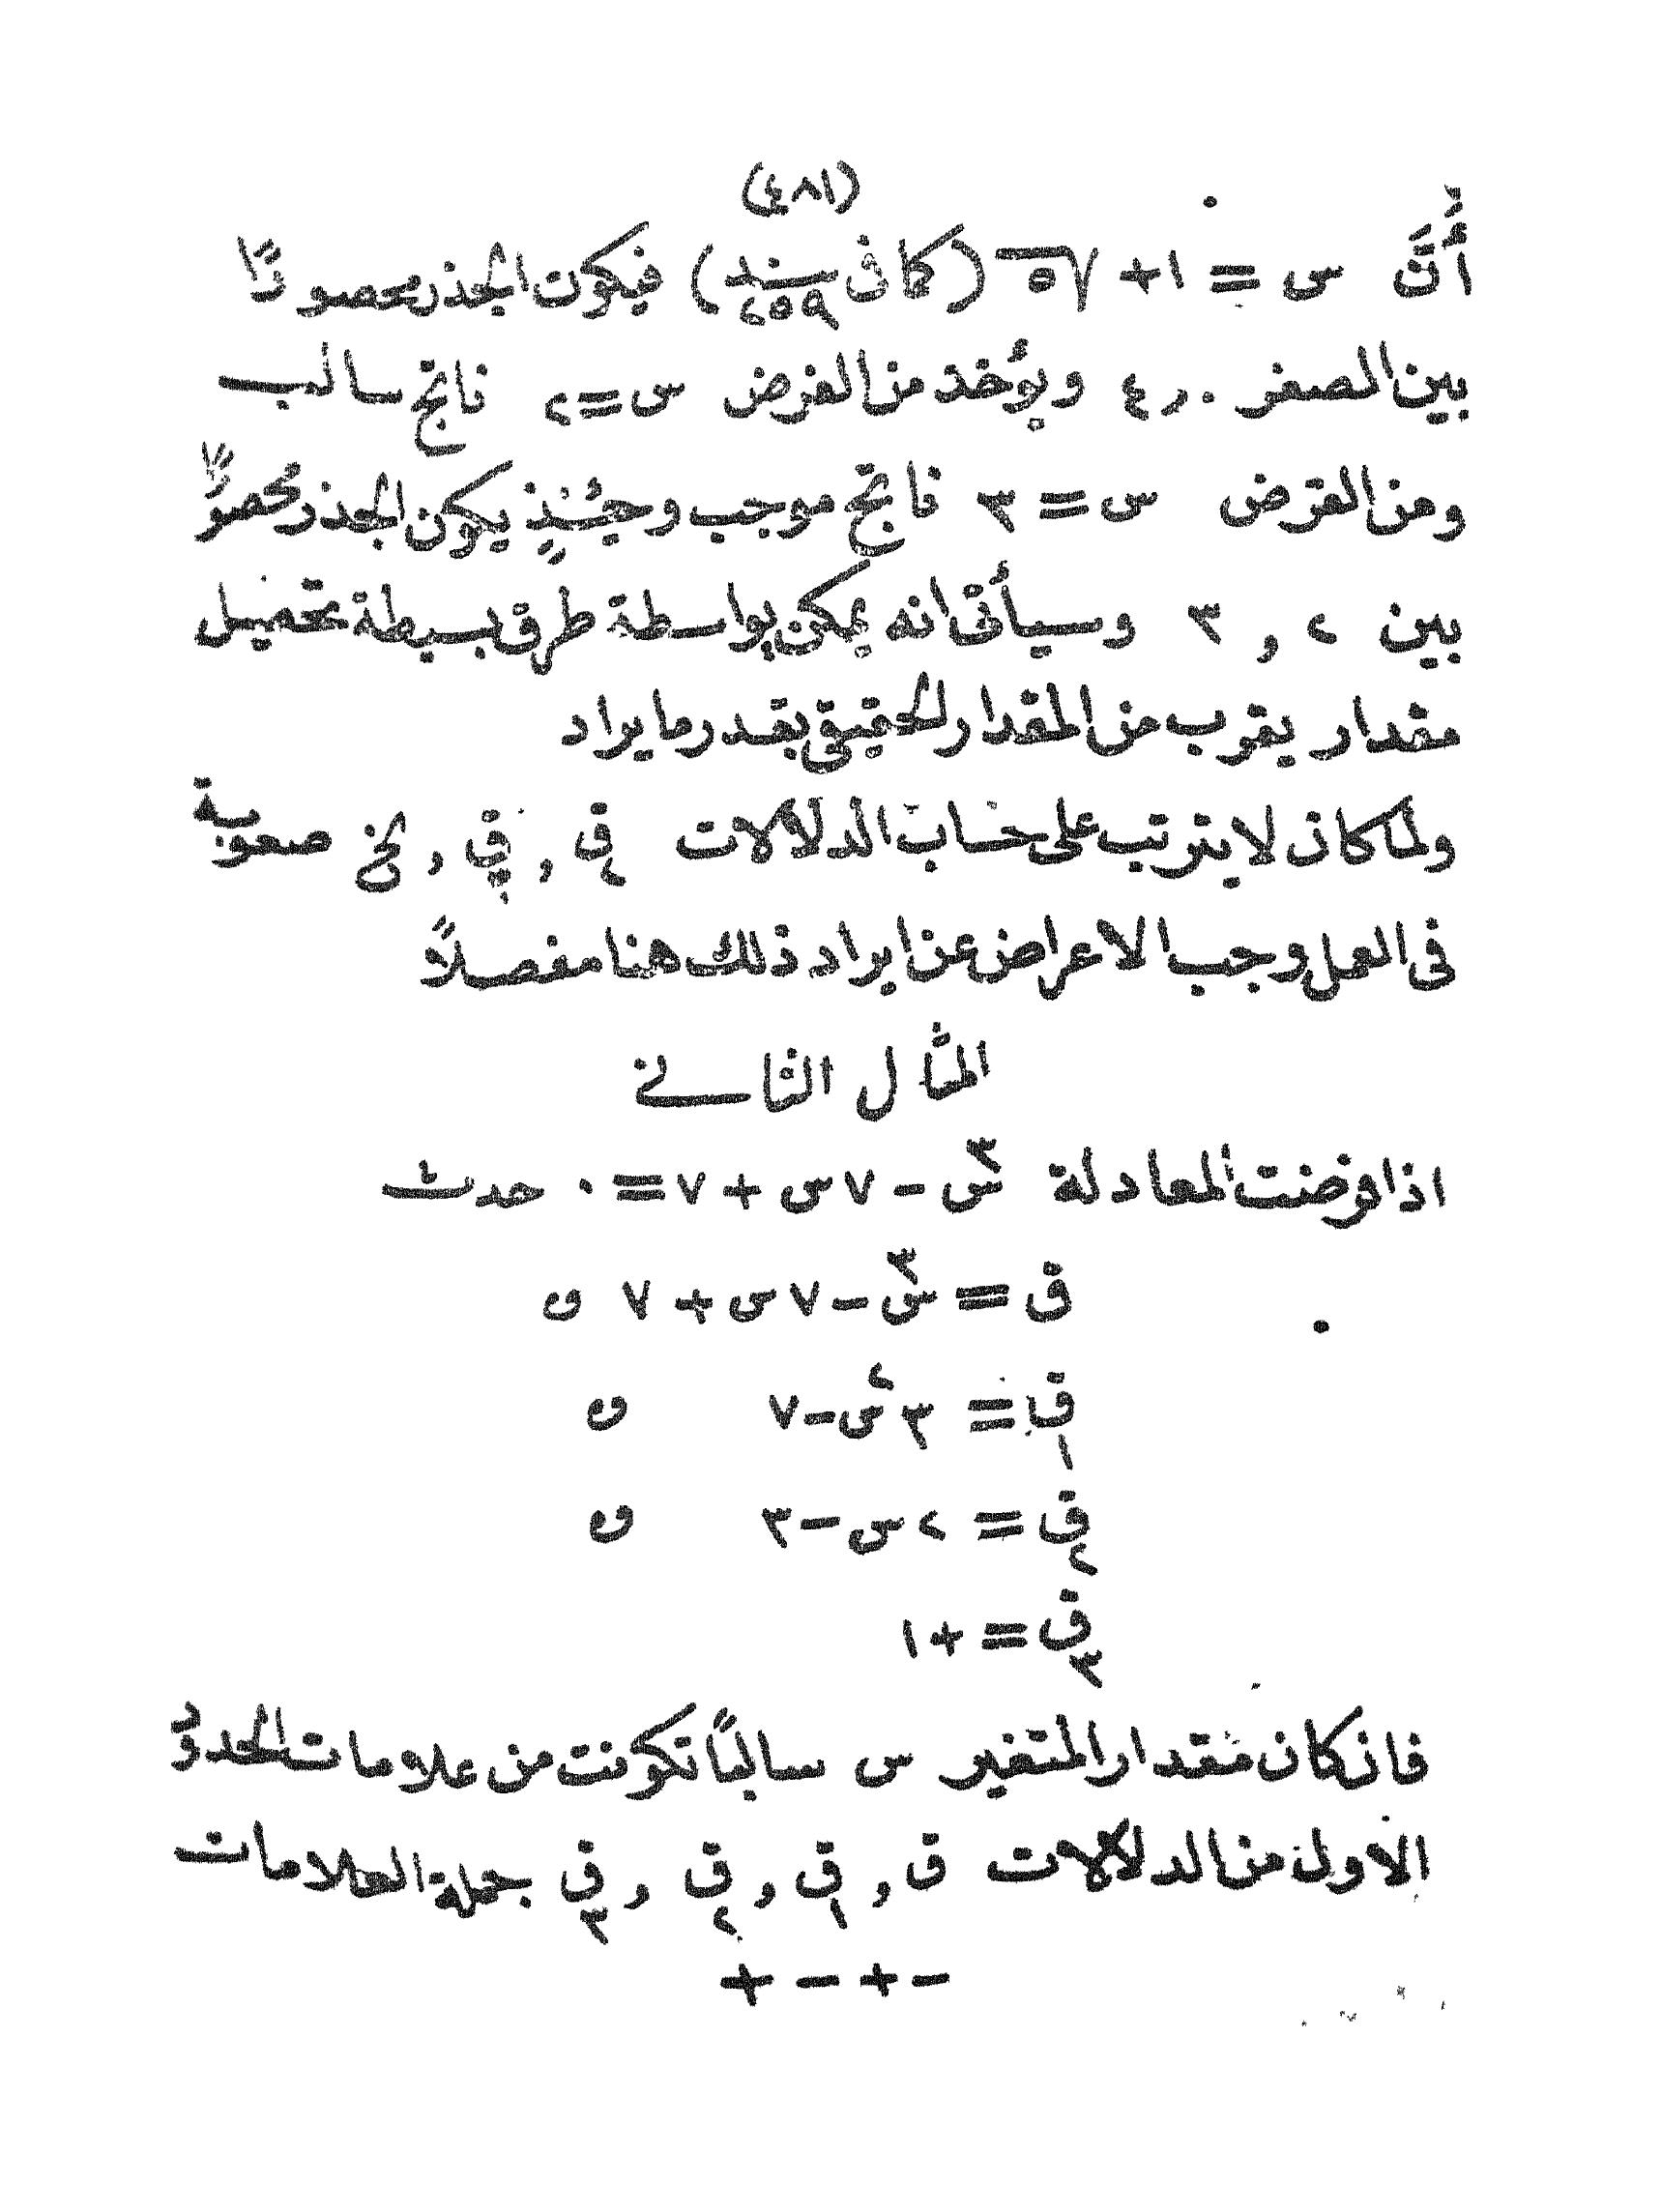 (٤٨١)
أنّ س = ١ + √٥ (كما فى بند ٢٥٩) فيكون الجذر محصورًا
بين الصفر ٠ ر ٤ ويؤخذ من الفرض س = ٢ ناتج سالب
ومن الفرض س = ٣ ناتج موجب وحينئذٍ يكون الجذر محصورًا
بين ٢ , ٣ وسيأتى انه يمكن بواسطة طرق بسيطة تحصيل
مقدار يقرب من المقدار الحقيقى بقدر ما يراد
ولما كان لا يترتب على حساب الدلالات ق٢ , ق٣ , الخ صعوبة
فى العمل وجب الاعراض عن ايراد ذلك هنا مفصلاً
المثال الثانى
اذا فرضت المعادلة س٣ - ٧س + ٧ = ٠ حدث
ق = س٣ - ٧س + ٧ و
ق١ = ٣س٢ - ٧ و
ق٢ = ٢س - ٣ و
ق٣ = + ١
فان كان مقدار المتغير س سالبًا تكونت من علامات الحدود
الاول من الدلالات ق , ق١ , ق٢ , ق٣ جملة العلامات
- + - +